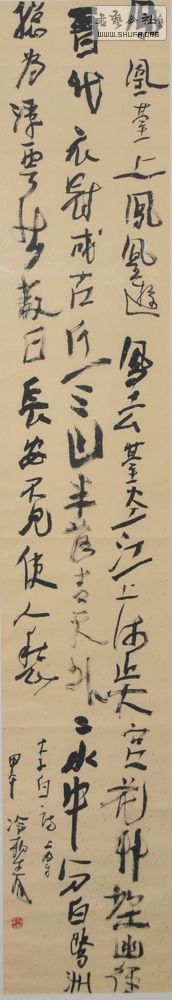 書法公社
WWW.SHUFA.ORG
鳳凰臺上鳳凰遊鳳去臺空江上流吳宮花草埋幽徑
晉代衣冠成古丘三山半落青天外二水中分白鷺洲
總為浮雲能蔽日長安不見使人愁
甲午